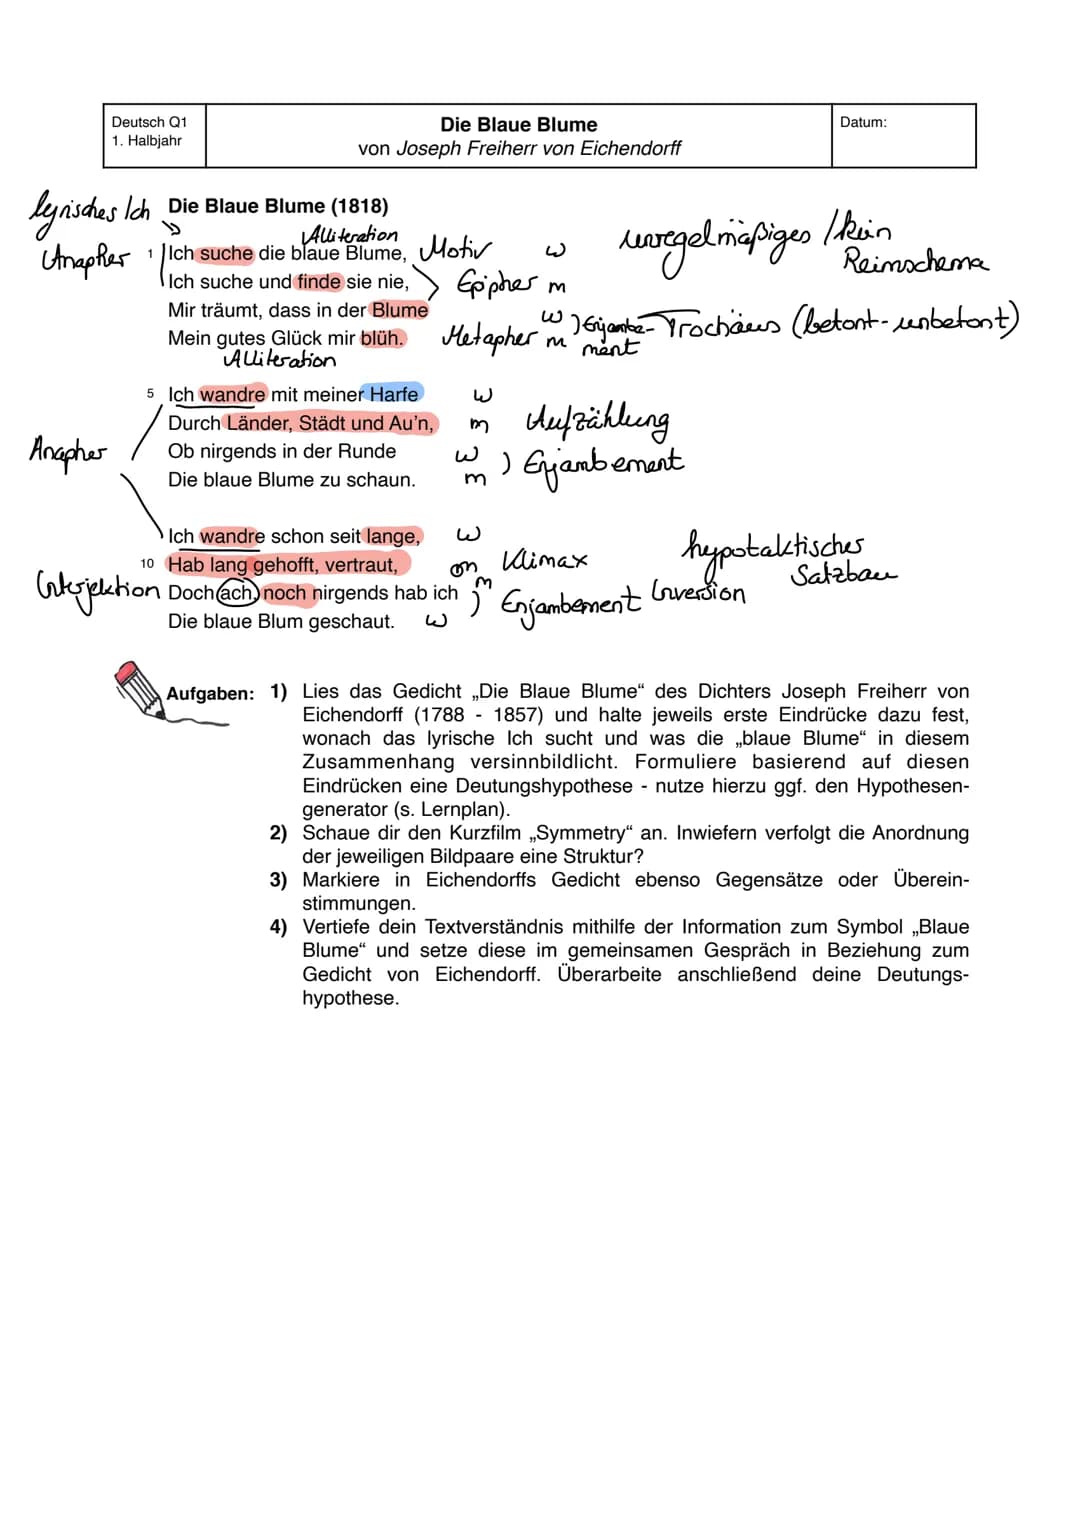 Deutsch Q1
1. Halbjahr
Die Blaue Blume
von Joseph Freiherr von Eichendorff
Datum:
lyrisches Ich
Die Blaue Blume (1818)
Alliteration
Anapher
1 Ich suche die blaue Blume, Motiv w
unregelmäßiges / kein
Reimschema
Ich suche und finde sie nie, Epipher m
Mir träumt, dass in der Blume w
Mein gutes Glück mir blüh. Metapher m
Enjambe-
ment
Trochäus (betont-unbetont)
Alliteration
5 Ich wandre mit meiner Harfe w
Durch Länder, Städt und Au'n, m Aufzählung
Anapher
Ob nirgends in der Runde w
Die blaue Blume zu schaun. m
) Enjambement
Ich wandre schon seit lange, w
hypotaktisches
Satzbau
10 Hab lang gehofft, vertraut, m Klimax
Interjektion
Doch ach, noch nirgends hab ich m
) Enjambement Inversion
Die blaue Blum geschaut. w
Aufgaben: 1) Lies das Gedicht „Die Blaue Blume“ des Dichters Joseph Freiherr von
Eichendorff (1788 - 1857) und halte jeweils erste Eindrücke dazu fest,
wonach das lyrische Ich sucht und was die „blaue Blume“ in diesem
Zusammenhang versinnbildlicht. Formuliere basierend auf diesen
Eindrücken eine Deutungshypothese - nutze hierzu ggf. den Hypothesen-
generator (s. Lernplan).
2) Schaue dir den Kurzfilm „Symmetry“ an. Inwiefern verfolgt die Anordnung
der jeweiligen Bildpaare eine Struktur?
3) Markiere in Eichendorffs Gedicht ebenso Gegensätze oder Überein-
stimmungen.
4) Vertiefe dein Textverständnis mithilfe der Information zum Symbol „Blaue
Blume“ und setze diese im gemeinsamen Gespräch in Beziehung zum
Gedicht von Eichendorff. Überarbeite anschließend deine Deutungs-
hypothese.